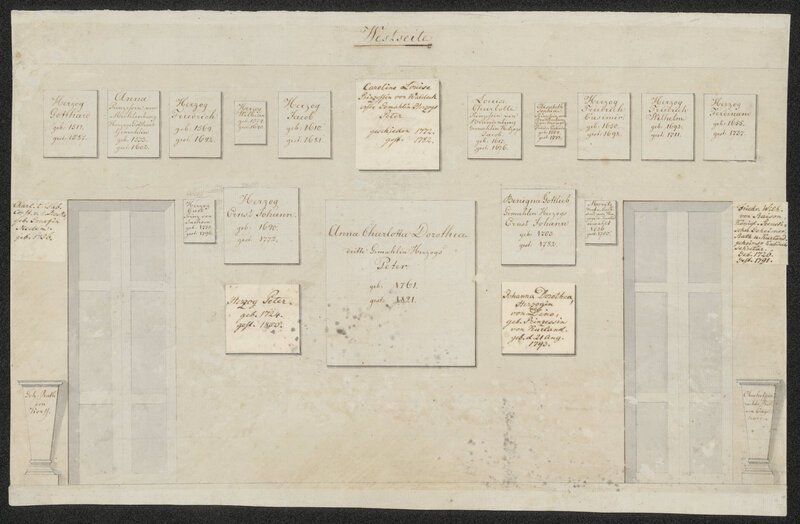 Westseite
Herzog
Gotthard
geb. 1517.
gest. 1587.
Anna
Prinzessin von
Mecklenburg
Gemahlin
geb. 1533.
gest. 1602.
Herzog
Friedrich
geb. 1569.
gest. 1642.
Herzog
Wilhelm
geb. 1574.
gest. 1640.
Herzog
Jacob
geb. 1610.
gest. 1681.
Caroline Louise
Prinzessin von Waldeck
erste Gemahlin Herzogs
Peter
geschieden 1772.
gest. 1782.
Louise
Charlotte
Prinzessin von
Brandenburg
Gemahlin Herzogs
Jacob
geb. 1617.
gest. 1676.
Elisabeth
Sophia
Herzog
Friedrich
Casimir
geb. 1650.
gest. 1698.
Herzog
Friedrich
Wilhelm
geb. 1692.
gest. 1711.
Herzog
Ferdinand
geb. 1655.
gest. 1737.
Herzog
Carl
Prinz von
Sachsen
gest. 1796.
Herzog
Ernst Johann
geb. 1690.
gest. 1772.
Anna Charlotta Dorothea
dritte Gemahlin Herzogs
Peter
geb. 1761.
gest. 1821.
Benigna Gottlieb
Gemahlin Herzogs
Ernst Johann
geb. 1703.
gest. 1782.
Moritz
Herzog Peter
geb. 1724.
gest. 1800.
Johanna Dorothea,
Herzogin
von Dino,
geb. Prinzessin
von Kurland
geb. d. 21 Aug.
1793.
Friedr. Wilh.
von Raison,
geb. 1726.
gest. 1791.
Geh. Rath
von
Korff.